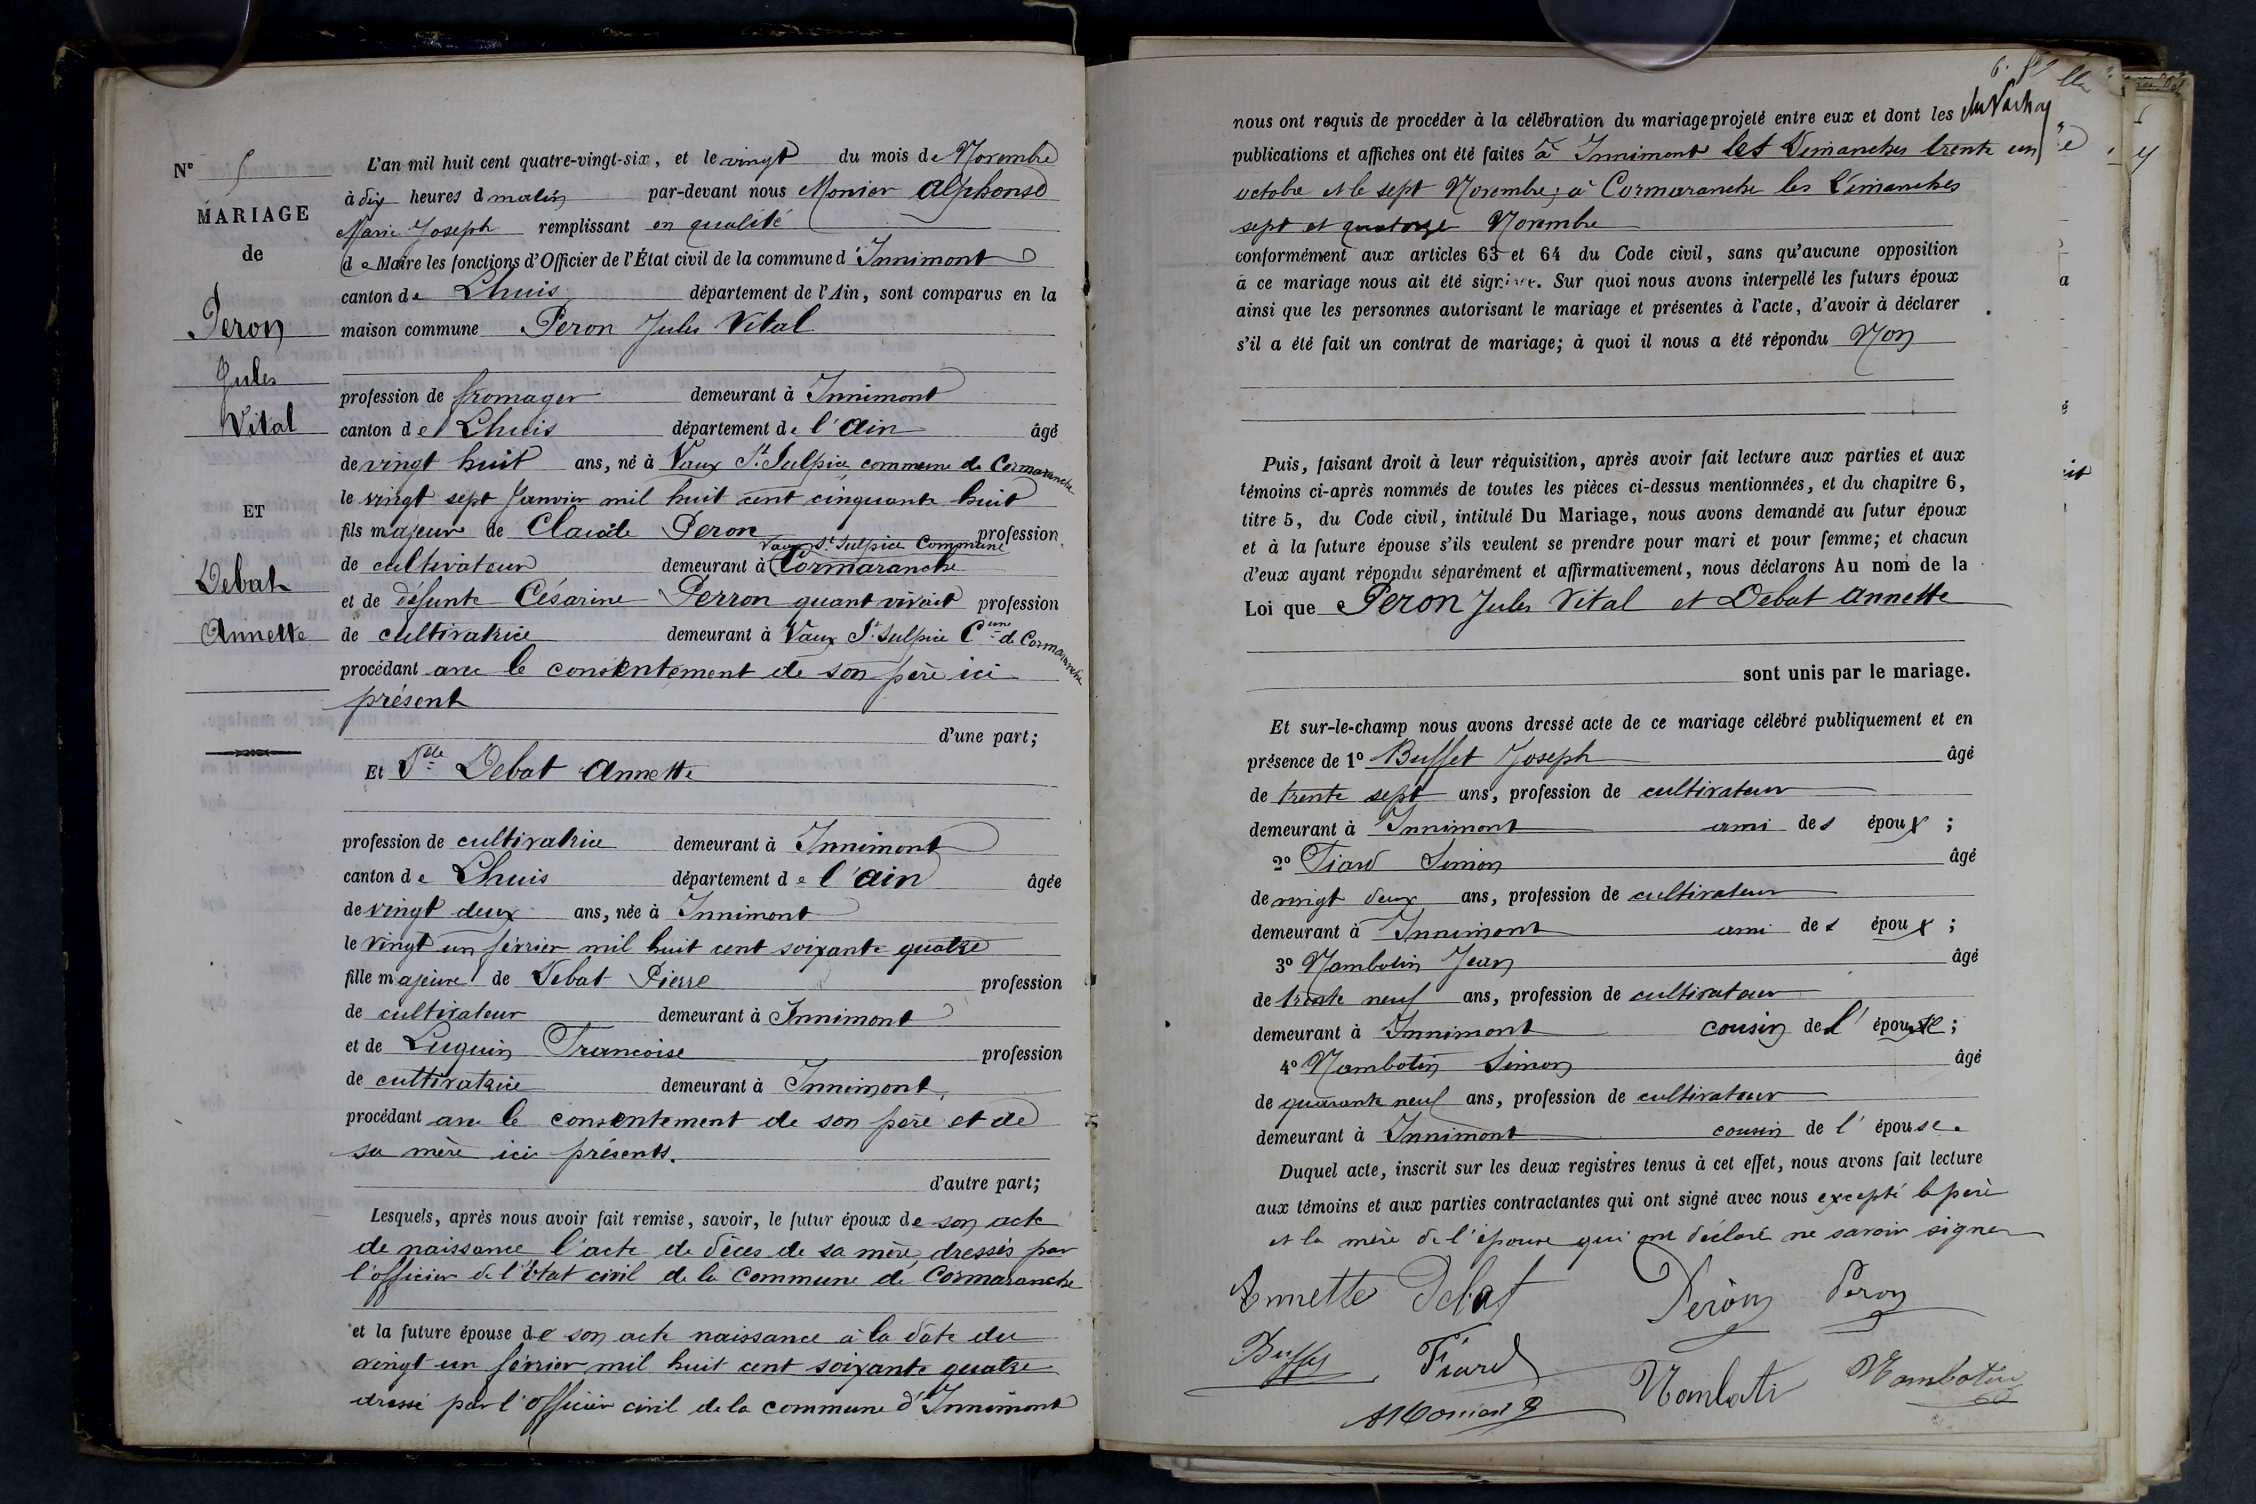 N° 5
MARIAGE
de
Peron
Jules
Vital
ET
Debat
Annette
L'an mil huit cent quatre-vingt-six, et le vingt du mois de Novembre
à dix heures d matin par-devant nous Monier Alphonse
Marie Joseph remplissant en qualité
de Maire les fonctions d'Officier de l'État civil de la commune d'Innimont
canton de Lhuis département de l'Ain, sont comparus en la
maison commune Peron Jules Vital
profession de fromager demeurant à Innimont
canton de Lhuis département de l'Ain âgé
de vingt huit ans, né à Vaux St. Sulpice commune de Cormaranche
le vingt sept Janvier mil huit cent cinquante huit
fils majeur de Claude Peron profession
Vaux St Sulpice Commune
de cultivateur demeurant à Cormaranche
et de défunte Césarine Perron quant vivait profession
de cultivatrice demeurant à Vaux St. Sulpice Cune de Cormaranche
procédant avec le consentement de son père ici
présent
d'une part;
Et Dlle Debat Annette
profession de cultivatrice demeurant à Innimont
canton de Lhuis département de l'Ain âgée
de vingt deux ans, née à Innimont
le vingt un février mil huit cent soixante quatre
fille majeure de Debat Pierre profession
de cultivateur demeurant à Innimont
et de Luquin Francoise profession
de cultivatrice demeurant à Innimont,
procédant avec le consentement de son père et de
sa mère ici présents.
d'autre part;
Lesquels, après nous avoir fait remise, savoir, le futur époux de son acte
de naissance l'acte de décès de sa mère dressés par
l'officier de l'état civil de la Commune de Cormaranche
et la future épouse de son acte naissance à la date du
vingt un février mil huit cent soixante quatre
dressé par l'officier civil de la commune d'Innimont
nous ont requis de procéder à la célébration du mariage projeté entre eux et dont les
publications et affiches ont été faites à Innimont les Dimanches trente un
octobre et le sept Novembre; à Cormaranche les Dimanches
sept et quatorze Novembre
conformément aux articles 63 et 64 du Code civil, sans qu'aucune opposition
à ce mariage nous ait été signifiée. Sur quoi nous avons interpellé les futurs époux
ainsi que les personnes autorisant le mariage et présentes à l'acte, d'avoir à déclarer
s'il a été fait un contrat de mariage; à quoi il nous a été répondu Non
Puis, faisant droit à leur réquisition, après avoir fait lecture aux parties et aux
témoins ci-après nommés de toutes les pièces ci-dessus mentionnées, et du chapitre 6,
titre 5, du Code civil, intitulé Du Mariage, nous avons demandé au futur époux
et à la future épouse s'ils veulent se prendre pour mari et pour femme; et chacun
d'eux ayant répondu séparément et affirmativement, nous déclarons Au nom de la
Loi que Peron Jules Vital et Debat Annette
sont unis par le mariage.
Et sur-le-champ nous avons dressé acte de ce mariage célébré publiquement et en
présence de 1° Buffet Joseph âgé
de trente sept ans, profession de cultivateur
demeurant à Innimont ami des époux ;
2° Fiard Simon âgé
de vingt deux ans, profession de cultivateur
demeurant à Innimont ami des époux ;
3° Nambotin Jean âgé
de trente neuf ans, profession de cultivateur
demeurant à Innimont cousin de l'épouse ;
4° Nambotin Simon âgé
de quarante neuf ans, profession de cultivateur
demeurant à Innimont cousin de l'épouse.
Duquel acte, inscrit sur les deux registres tenus à cet effet, nous avons fait lecture
aux témoins et aux parties contractantes qui ont signé avec nous excepté le père
et la mère de l'épouse qui ont déclaré ne savoir signer
Annette Debat Péron Peron
Buffet Fiard Nambotin
AMonier